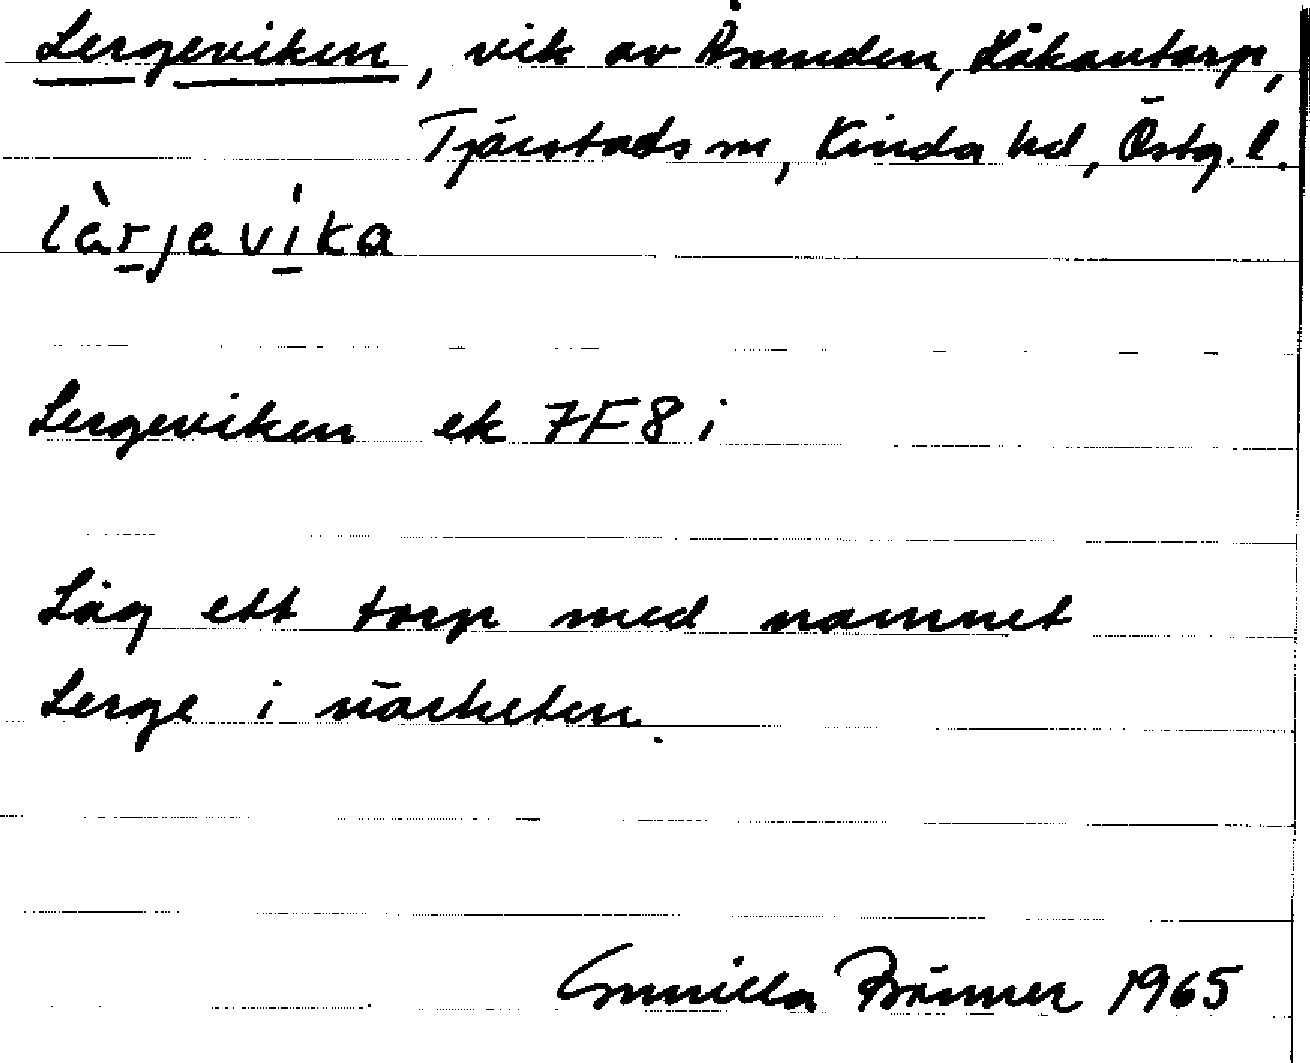 Lergeviken, vik av Åsunden, Håkantorp,
Tjärstads sn, Kinda hd, Östg. l.
làrjavìka
Lergeviken ek 7F8i
Låg ett torp med namnet
Lerge i närheten.
Gunilla 1965